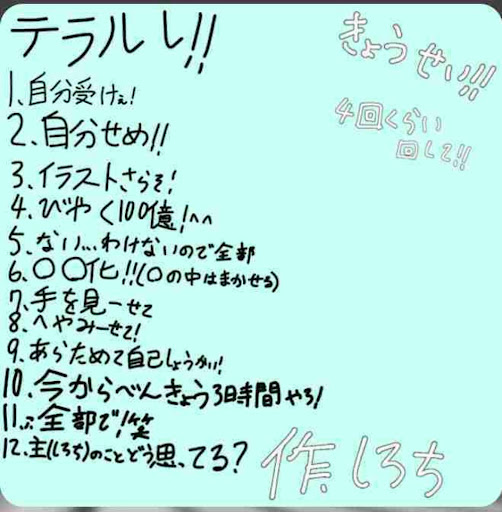 テラルし!!
きょうせい!!
4回くらい
回して!!
1.自分受けぇ!
2.自分せめ!!
3.イラストさらそ!
4.びやく100億!^^
5.ない...わけないので全部
6.〇〇化!!(〇の中はまかせる)
7.手を見ーせて
8.へやみーせて!
9.あらためて自己しょうかい!
10.今からべんきょう3時間やろ!
11...全部で!笑
12.主(しろち)のことどう思ってる?
作.しろち